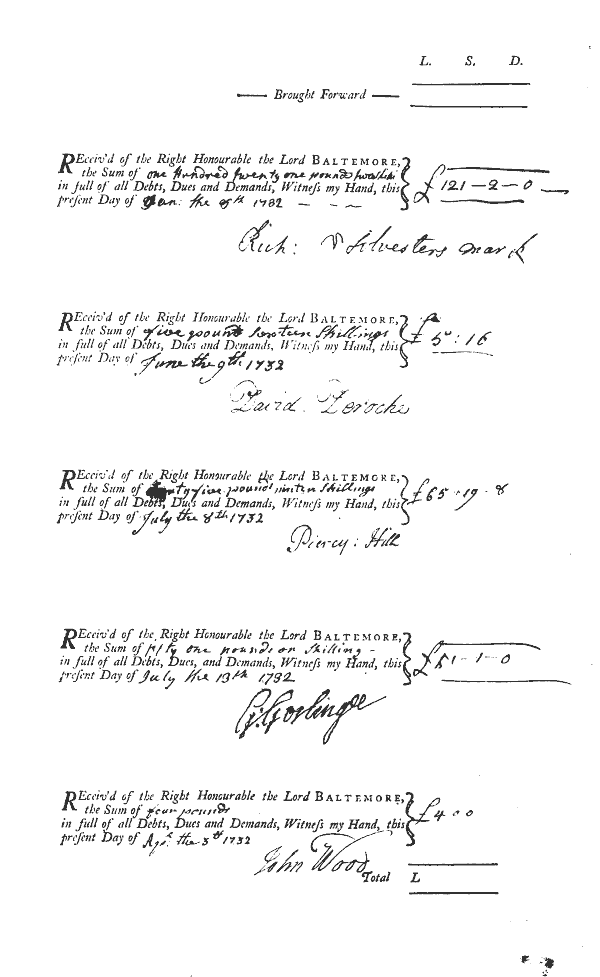 L. S. D.
Brought Forward
REceiv'd of the Right Honourable the Lord BALTEMORE,
the Sum of one Hundred twenty one pounds
in full of all Debts, Dues and Demands, Witneſs my Hand, this
preſent Day of Jan: the 8th 1732
£ 121-2-0
Rich: Silvesters mark
REceiv'd of the Right Honourable the Lord BALTEMORE,
the Sum of five pound Shillings
in full of all Debts, Dues and Demands, Witneſs my Hand, this
preſent Day of June the 9th 1732
£ 5:16
David Deroche
REceiv'd of the Right Honourable the Lord BALTEMORE,
the Sum of five pound Shillings
in full of all Debts, Dues and Demands, Witneſs my Hand, this
preſent Day of July the 8th 1732
£65-19-8
Piercy: Hill
REceiv'd of the Right Honourable the Lord BALTEMORE,
the Sum of fifty one pounds on Shilling
in full of all Debts, Dues, and Demands, Witneſs my Hand, this
preſent Day of July the 13th 1732
£51-1-0
G: Goslinge
REceiv'd of the Right Honourable the Lord BALTEMORE,
the Sum of four pounds
in full of all Debts, Dues and Demands, Witneſs my Hand, this
preſent Day of the 3th 1732
£4 0 0
John Wood
Total L